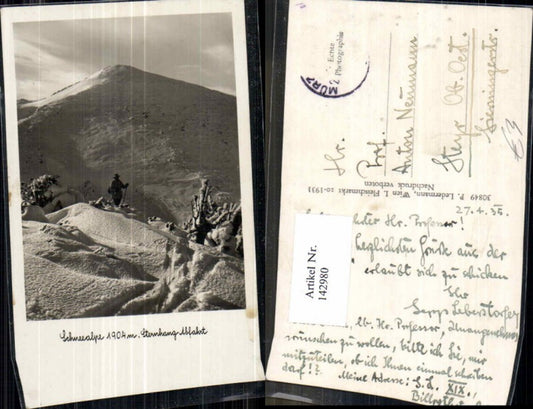 Schneealpe 1904 m. Sternhang-Abfahrt
MÜRZ
Echte
Photographie
Hr.
Prof.
Anton Neumann
Steyr Ob. Oest.
30849 P. Ledermann, Wien I. Fleischmarkt 20-1931
Nachdruck verboten
27.4.35.
Hr. Professor!
herzlichsten Grüße aus der
erlaubt sich zu schicken
Ihr
Artikel Nr.
142980
Hr. Professor, Unangenehmes
wünschen zu wollen, bitte ich Sie, mir
mitzuteilen, ob ich Ihnen einmal schreiben
darf!?
Meine Adresse: XIX.,
Billroth